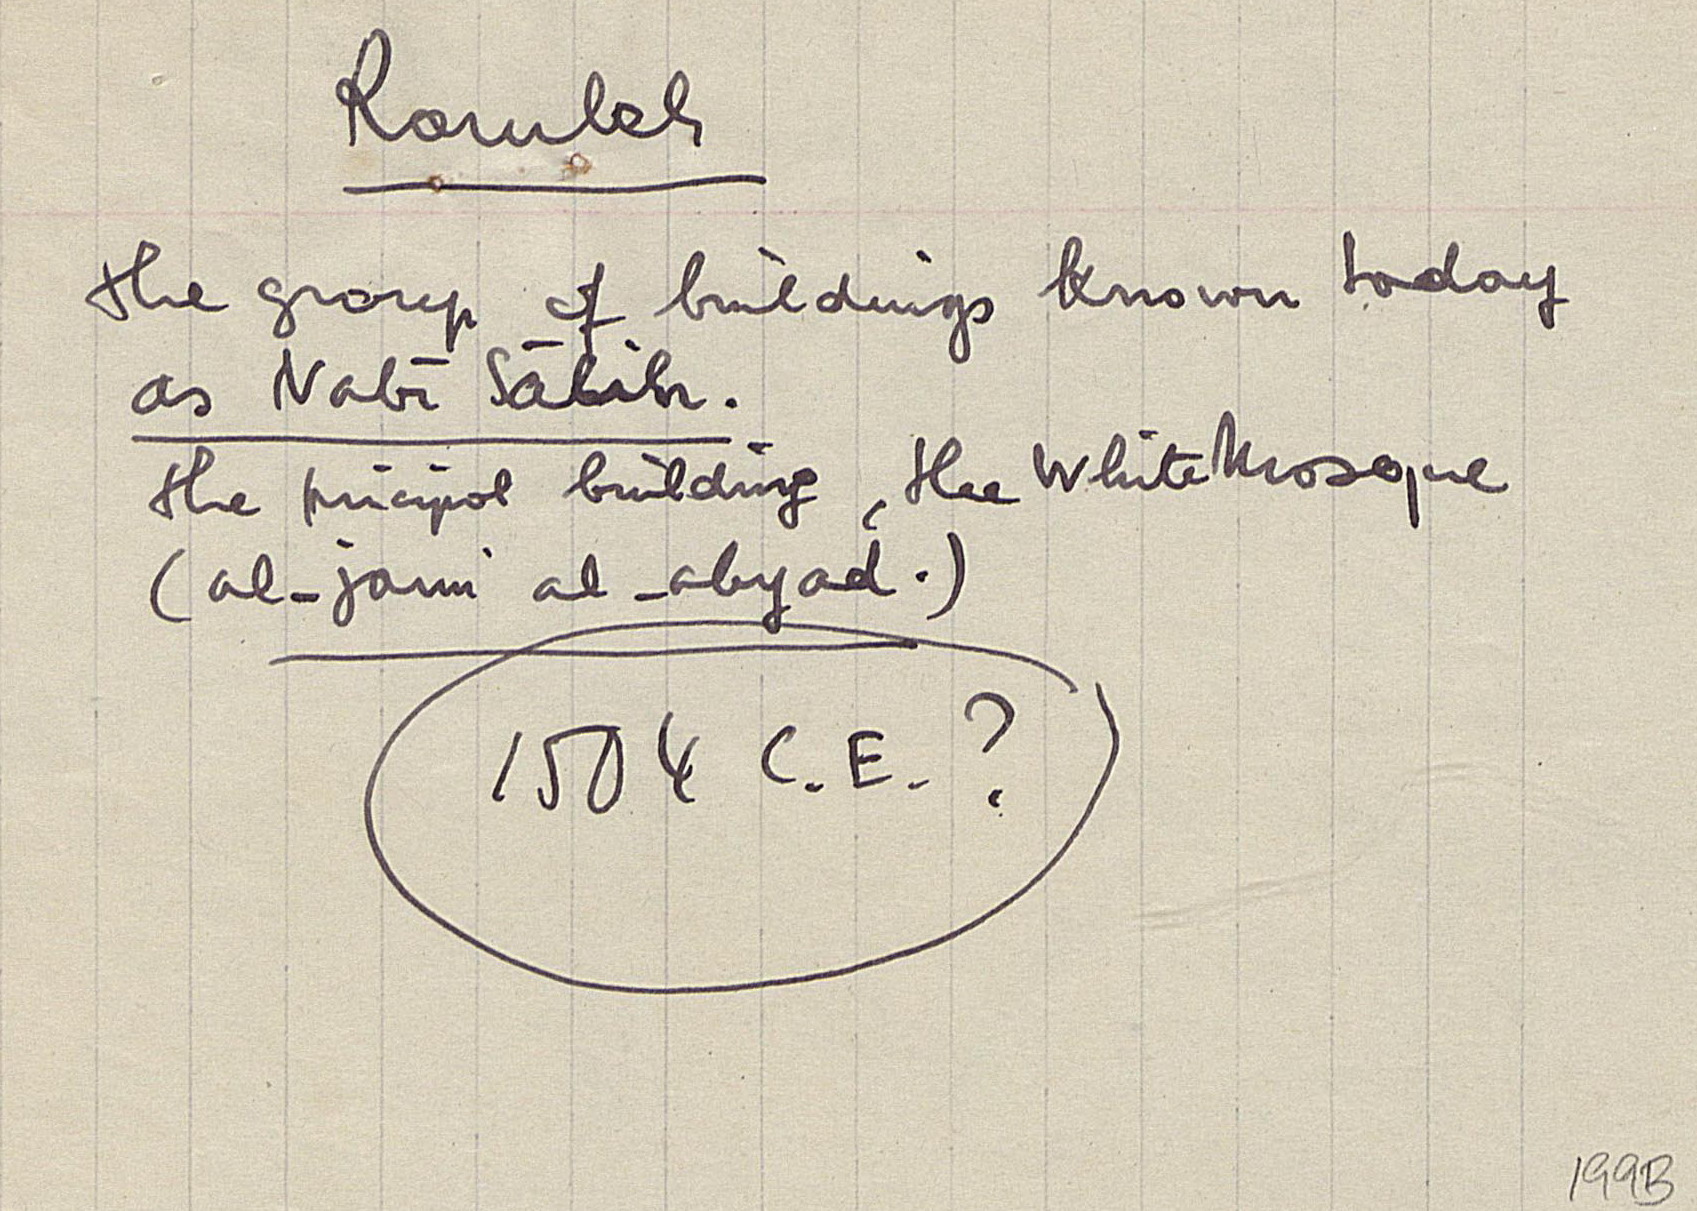 Ramleh
the group of buildings known today
as Nabī Sālih.
the pricipal building, the White Mosque
(al-jami al-abyad.)
1504 C.E. ?
199B